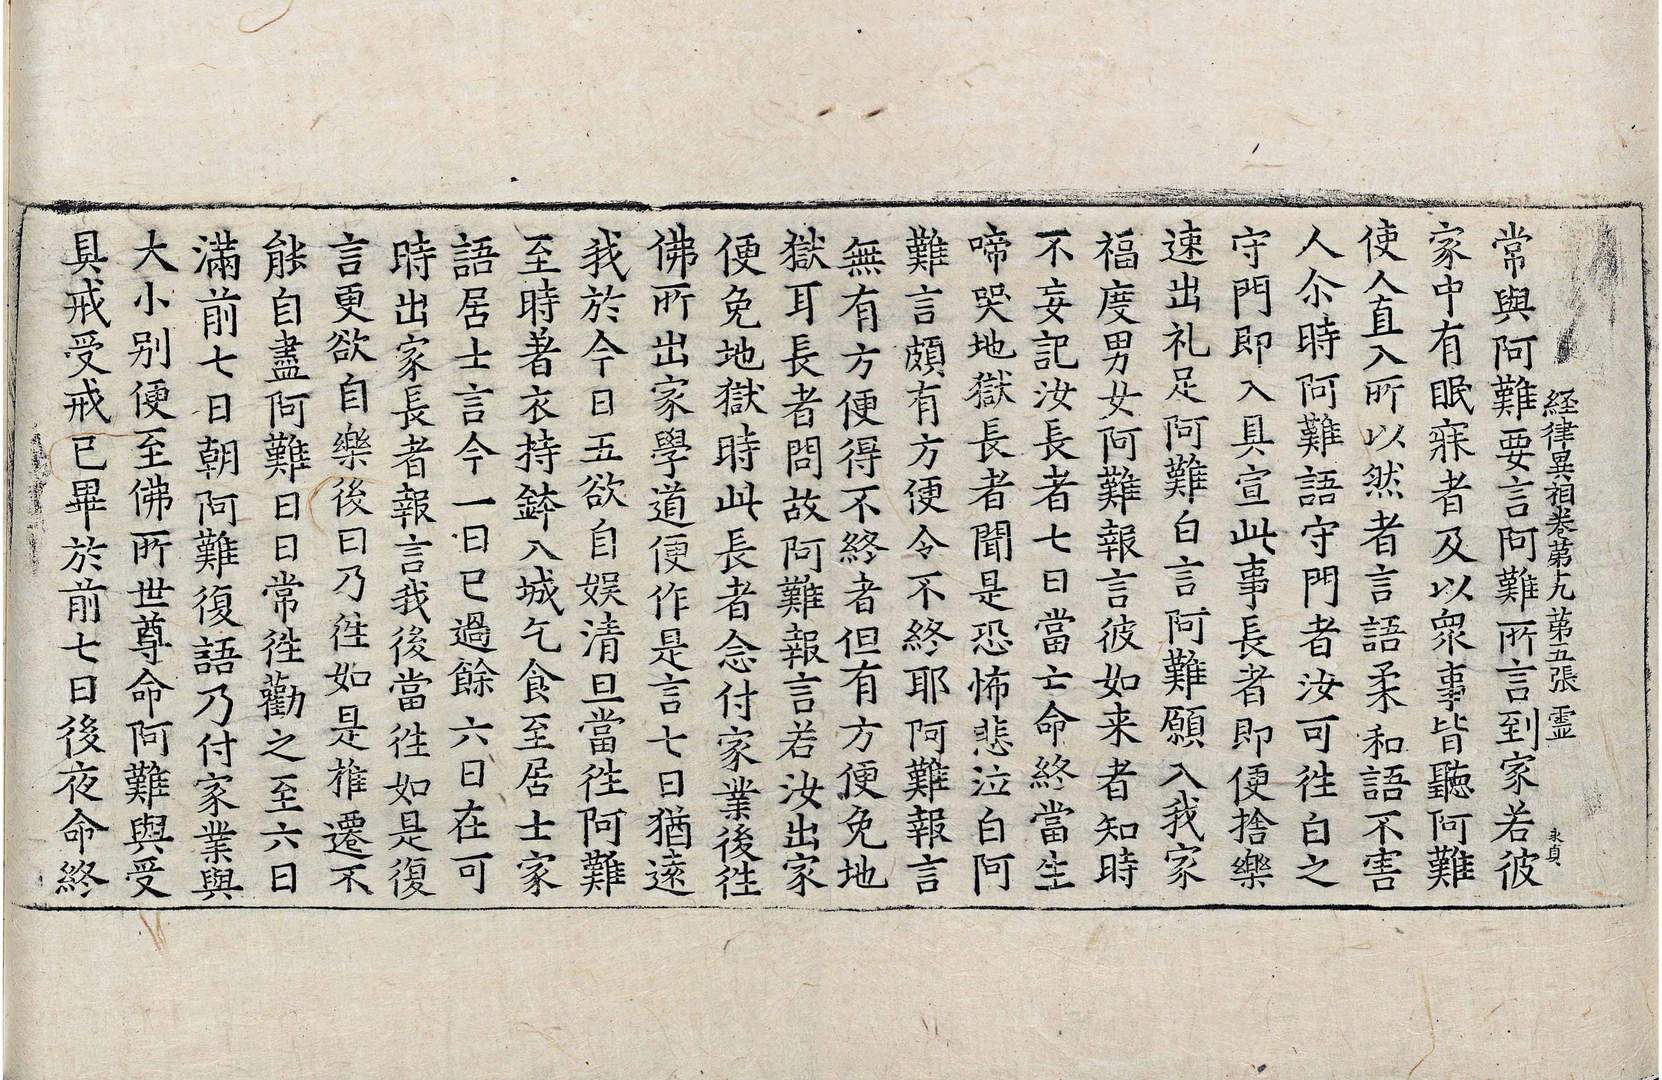 経律異相卷第十九 第五張 霊 永貞
常與阿難要言阿難所言到家若彼
家中有眠寐者及以衆事皆聽阿難
使人直入所以然者言語柔和語不害
人尒時阿難語守門者汝可徃白之
守門即入具宣此事長者即便捨樂
速出礼足阿難白言阿難願入我家
福度男女阿難報言彼如来者知時
不妄記汝長者七日當亡命終當生
啼哭地獄長者聞是恐怖悲泣白阿
難言頗有方便令不終耶阿難報言
無有方便得不終者但有方便免地
獄耳長者問故阿難報言若汝出家
便免地獄時此長者念付家業後徃
佛所出家學道便作是言七日猶遠
我於今日五欲自娛清旦當徃阿難
至時著衣持鉢入城乞食至居士家
語居士言今一日已過餘六日在可
時出家長者報言我後當徃如是復
言更欲自樂後日乃徃如是推遷不
能自盡阿難日日常徃勸之至六日
滿前七日朝阿難復語乃付家業與
大小別便至佛所世尊命阿難與受
具戒受戒已畢於前七日後夜命終